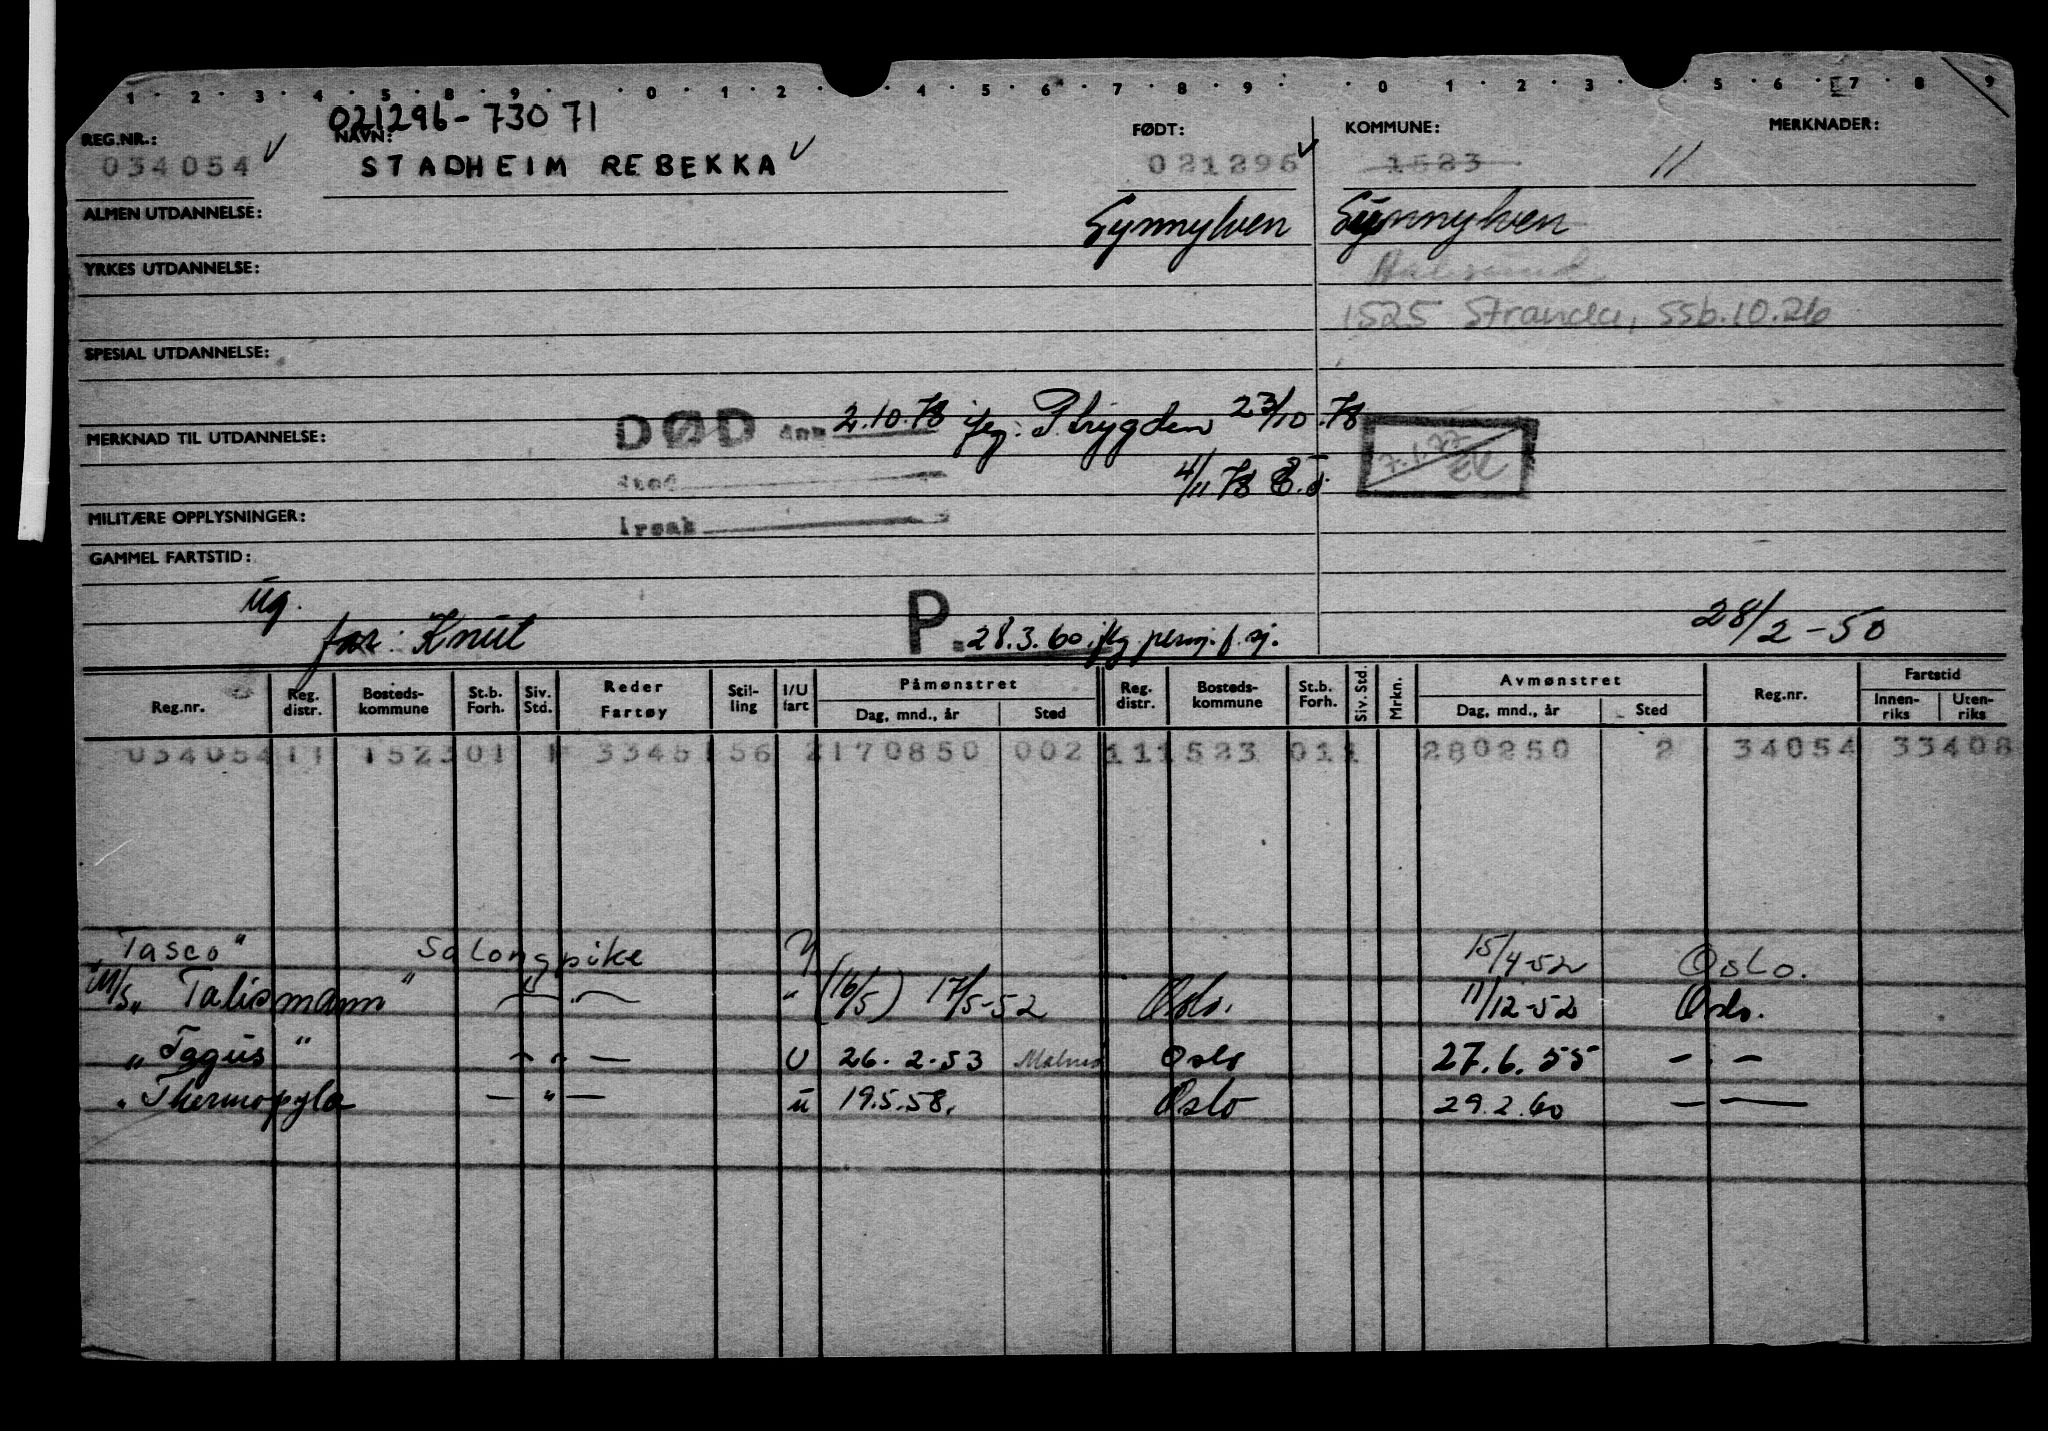 1 2 3 4 5 8 9 0 1 2 4 5 6 7 8 9 0 1 2 3 5 6 7 8 9
021296-73071
REG.NR.: NAVN: FØDT: KOMMUNE: MERKNADER:
034054 STADHEIM REBEKKA 021296 1523 11
ALMEN UTDANNELSE: Synnylven Synnylven
YRKES UTDANNELSE:
1525 Stranda, ssb.10.26
SPESIAL UTDANNELSE:
DØD den 2.10.78 ifg. P.trygden 23/10.78
MERKNAD TIL UTDANNELSE:
7.1.77
Sted 4/11 78
MILITÆRE OPPLYSNINGER: Årsak
GAMMEL FARTSTID:
ug. 28/2-50
far: Knut P. 28.3.60 ifg. pensj. f. sj.
Reg.nr. Reg. distr. Bosteds-kommune St.b. Forh. Siv. Std. Reder Fartøy Stil-ling I/U fart Påmønstret Dag, mnd., år Sted Reg. distr. Bosteds-kommune St.b. Forh. Siv. Std. Mrkn. Avmønstret Dag, mnd., år Sted Reg.nr. Fartstid Innen-riks Uten-riks
034054 11 152301 3345 156 2170850 002 111523 011 280250 2 34054 33408
"Tasco" Salongpike U 15/4-52 Oslo.
M/S "Talismann" — " — " (16/5) 17/5-52 Oslo. 11/12-52 Oslo.
"Tagus" — " — U 26.2.53 Oslo 27.6.55 — " —
" Thermopylæ — " — u 19.5.58. Oslo 29.2.60 — " —